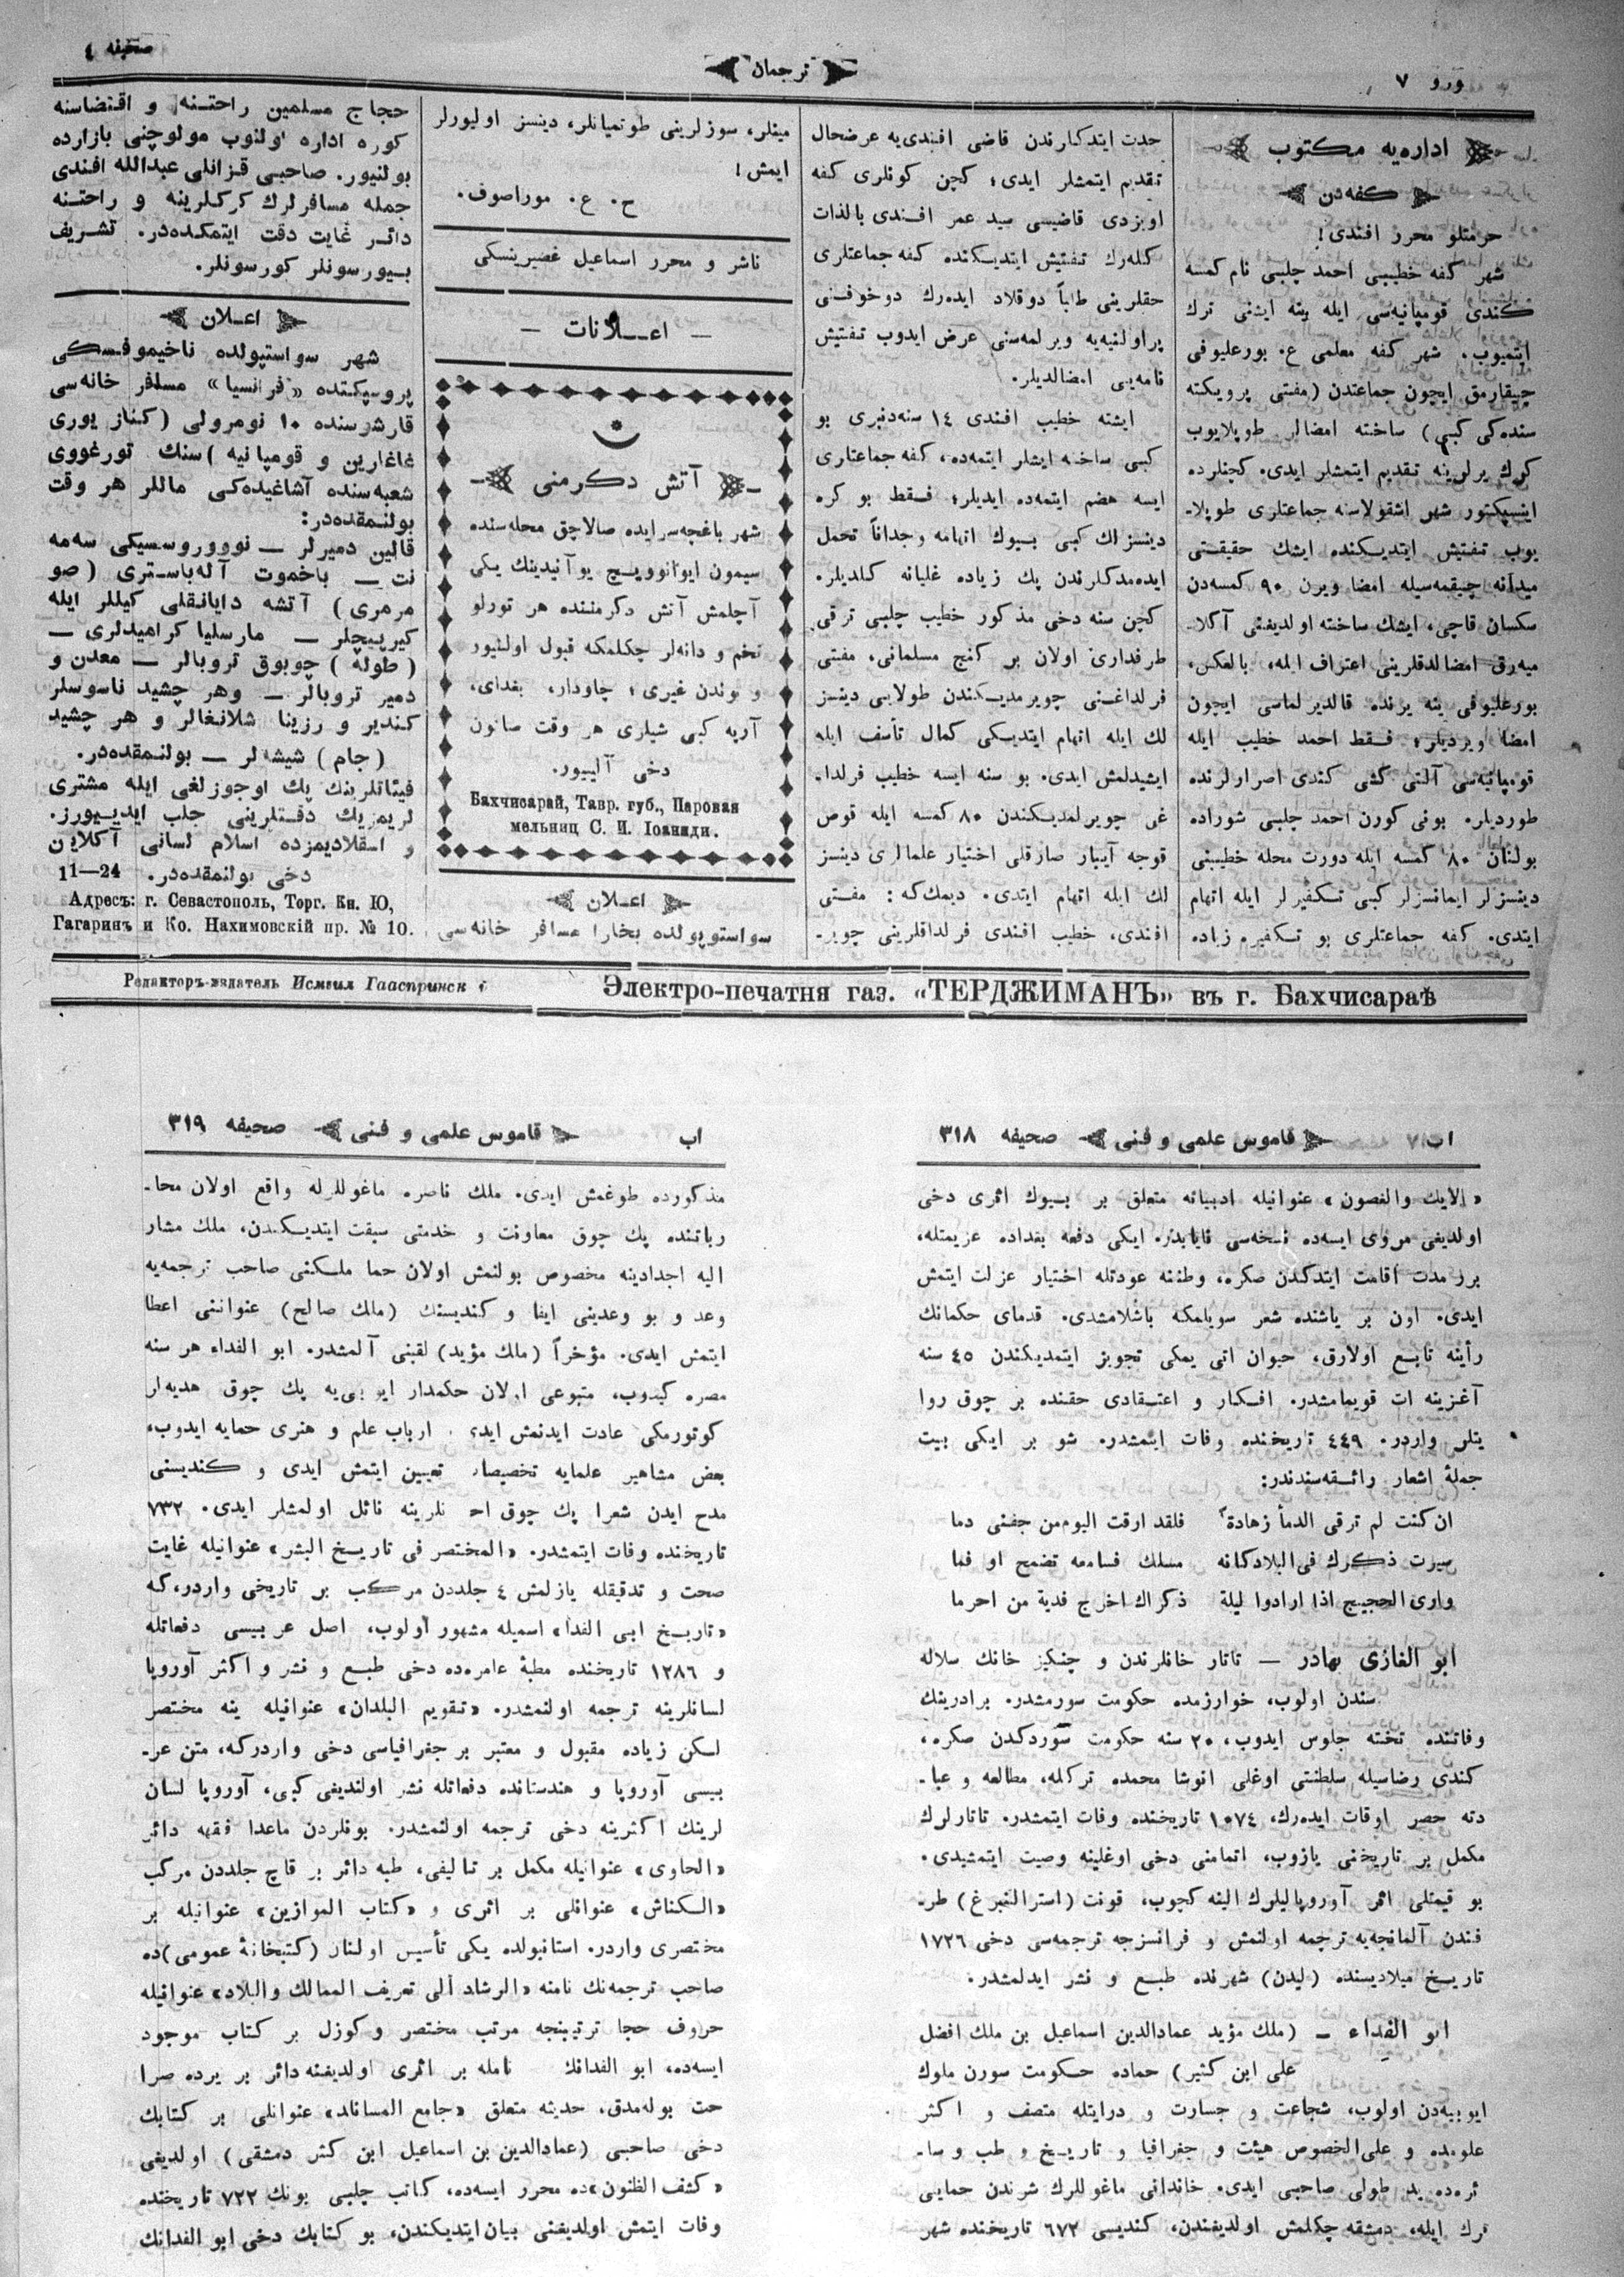 نورو ٧
ترجمان
صحيفه ٤
اداره‌يه مكتوب
كفه‌دن
حرمتلو محرر افندی!
شهر كفه خطيبی احمد چلبی نام كمسه
كندی قومپانيه‌سی ايله ينه ايشنی ترك
ايتميوب. شهر كفه معلمی ع. بورعليوفی
چيقارمق ايچون جماعتدن (مفتی پرويكته
سنده‌كی كبی) ساخته امضالر طوپلايوب
كرك يرلرينه تقديم ايتمشلر ايدی. كچنلرده
اينسپكتور شهر اشقولاسنه جماعتلری طوپلا-
يوب تفتيش ايتديكنده ايشك حقيقتی
ميدانه چيقمه‌سيله امضا ويرن ٩٠ كمسه‌دن
سكسان قاچی، ايشك ساخته اولديغنی آكلا-
ميه‌رق امضالدقلرينی اعتراف ايله، بالعكس،
بورعليوفی ينه يرنده قالديرلماسی ايچون
امضا ويرديلر؛ فقط احمد خطيب ايله
قومپانيه‌سی آلتی كشی كندی اصرارلرنده
طورديلر. بونی كورن احمد چلبی شوراده
بولنان ٨٠ كمسه ايله دورت محله خطيبنی
دينسزلر ايمانسزلر كبی تكفيرلر ايله اتهام
ايتدی. كفه جماعتلری بو تكفيره زياده
حدت ايتدكلرندن قاضی افندی‌يه عرضحال
تقديم ايتمشلر ايدی؛ كچن كونلری كفه
اويزدی قاضيسی سيد عمر افندی بالذات
كله‌رك تفتيش ايتديكنده كفه جماعتلری
حقلرينی طلباً دوقلاد ايده‌رك دوخوفنی
پراولنيه‌يه ويرلمه‌سنی عرض ايدوب تفتيش
نامه‌يی امضالديلر.
ايشته خطيب افندی ١٤ سنه‌دنبری بو
كبی ساخته ايشلر ايتمه‌ده، كفه جماعتلری
ايسه هضم ايتمه‌ده ايديلر؛ فقط بو كره
دينسزلك كبی بيوك اتهامه وجداناً تحمل
ايده‌مدكلرندن پك زياده غليانه كلديلر.
كچن سنه دخی مذكور خطيب چلبی ترقی
طرفداری اولان بر كنج مسلمانی، مفتی
فرلداغنی چويرمديكندن طولايی دينسز
لك ايله اتهام ايتديكی كمال تأسف ايله
ايشيدلمش ايدی. بو سنه ايسه خطيب فرلدا-
غی چويرلمديكندن ٨٠ كمسه ايله قوص
قوجه آپپار صارقلی اختيار علمالری دينسز
لك ايله اتهام ايتدی. ديمك‌كه: مفتی
افندی، خطيب افندی فرلداقلرينی چوير-
مينلر، سوزلرينی طوتميانلر، دينسز اوليورلر
ايمش!
ح. ع. موراصوف.
ناشر و محرر اسماعيل غصپرينسكی
— اعلانات —
آتش دكرمنی
شهر باغچه‌سرايده صالاچق محله‌سنده
سيمون ايوانوويچ يوآنيدينك يكی
آچلمش آتش دكرمننده هر تورلو
تخم و دانه‌لر چكلمكه قبول اولنيور
و بوندن غيری؛ چاودار، بغدای،
آرپه كبی شيلری هر وقت صاتون
دخی آليور.
Бахчисарай, Тавр. губ., Паровая
мельниц С. И. Іоаниди.
اعلان
سواستوپولده بخارا مسافر خانه‌سی
حجاج مسلمين راحتنه و اقتضاسنه
كوره اداره اولنوب مولوچنی بازارده
بولنيور. صاحبی قزانلی عبدالله افندی
جمله مسافرلرك كركلرينه و راحتنه
دائر غايت دقت ايتمكده‌در. تشريف
بيورسونلر كورسونلر.
اعلان
شهر سواستپولده ناخيموفسكی
پروسپكتنده «فرانسيا» مسافر خانه‌سی
قارشوسنده ١٠ نومرولی (كناز يوری
غاغارين و قومپانيه) سنك تورغووی
شعبه‌سنده آشاغيده‌كی ماللر هر وقت
بولنمقده‌در:
قالين دميرلر — نووروسسيكی سه‌مه
نت — باخموت آله‌باستری (صو
مرمری) آتشه دايانقلی كيللر ايله
كيرپيچلر — مارسليا كراميدلری —
(طوله) چوبوق تروبالر — معدن و
دمير تروبالر — وهر چشيد ناسوسلر
كندير و رزينا شلانغالر و هر چشيد
(جام) شيشه‌لر — بولنمقده‌در.
فيئاتلرينك پك اوجوزلغی ايله مشتری
لريمزيك دقتلرينی جلب ايدييورز.
و اسقلاديمزده اسلام لسانی آكلايان
دخی بولنمقده‌در. 24—11
Адресъ: г. Севастополь, Торг. Кн. Ю,
Гагаринъ и Ко. Нахимовскій пр. № 10.
Редакторъ-издатель Исмаил Гаспринск
Электро-печатня газ. «ТЕРДЖИМАНЪ» въ г. Бахчисараѣ
اب قاموس علمی و فنی صحيفه ٣١٨
«الايك والغصون» عنوانيله ادبياته متعلق بر بيوك اثری دخی
اولديغی مروی ايسه‌ده نسخه‌سی ناياب‌در. ايكی دفعه بغداده عزيمتله،
بر مدت اقامت ايتدكدن صكره، وطننه عودتله اختيار عزلت ايتمش
ايدی. اون بر ياشنده شعر سويلمكه باشلامشدی. قدمای حكمانك
رأينه تابع اولارق، حيوان اتی يمكی تجويز ايتمديكندن ٤٥ سنه
آغزينه ات قويمامشدر. افكار و اعتقادی حقنده بر چوق روا
يتلر واردر. ٤٤٩ تاريخنده وفات ايتمشدر. شو بر ايكی بيت
جملهٔ اشعار رائقه‌سندندر:
ان كنت لم ترقی الدمأ زهادة فلقد ارقت اليوم‌من جفنی دما
سيرت ذكرك فی‌البلادكانه مسلك فسامعه تضمح او فما
واری الحجيج اذا ارادوا ليلة ذكراك اخرج فدية من احرما
ابو الغازی بهادر — تاتار خانلرندن و چنكيز خانك سلاله
سندن اولوب، خوارزمده حكومت سورمشدر. برادرينك
وفاتنده تخته جلوس ايدوب، ٢٠ سنه حكومت سوردكدن صكره،
كندی رضاسيله سلطنتی اوغلی انوشا محمده تركله، مطالعه و عبا-
دته حصر اوقات ايده‌رك، ١٠٧٤ تاريخنده وفات ايتمشدر. تاتارلرك
مكمل بر تاريخنی يازوب، اتمامنی دخی اوغلينه وصيت ايتمشيدی.
بو قيمتلی اثر آوروپاليلرك الينه كچوب، قونت (استرالنبرغ) طر-
فندن آلمانجه‌يه ترجمه اولنمش و فرانسزجه ترجمه‌سی دخی ١٧٢٦
تاريخ ميلاديسنده (ليدن) شهرنده طبع و نشر ايدلمشدر.
ابو الفداء — (ملك مؤيد عمادالدين اسماعيل بن ملك افضل
علی ابن كثير) حماده حكومت سورن ملوك
ايوبيه‌دن اولوب، شجاعت و جسارت و درايتله متصف و اكثر
علومده و علی‌الخصوص هيئت و جغرافيا و تاريخ و طب و سا-
ئره‌ده يد طولی صاحبی ايدی. خاندانی ماغوللرك شرندن حمايی
ترك ايله، دمشقه چكلمش اولديغندن، كنديسی ٦٧٢ تاريخنده شهر
اب قاموس علمی و فنی صحيفه ٣١٩
مذكورده طوغمش ايدی. ملك ناصره ماغوللرله واقع اولان محا-
رباتنده پك چوق معاونت و خدمتی سبقت ايتديكندن، ملك مشار
اليه اجدادينه مخصوص بولنمش اولان حما ملكنی صاحب ترجمه‌يه
وعد و بو وعدينی ايفا و كنديسنه (ملك صالح) عنواننی اعطا
ايتمش ايدی. مؤخراً (ملك مؤيد) لقبنی آلمشدر. ابو الفداء هر سنه
مصره كيدوب، متبوعی اولان حكمدار ايوبی‌يه پك چوق هديه‌لر
كوتورمكی عادت ايدنمش ايدی. ارباب علم و هنری حمايه ايدوب،
بعض مشاهير علمايه تخصيصات تعيين ايتمش ايدی و كنديسنی
مدح ايدن شعرا پك چوق احسانلرينه نائل اولمشلر ايدی. ٧٣٢
تاريخنده وفات ايتمشدر. «المختصر فی تاريخ البشر» عنوانيله غايت
صحت و تدقيقله يازلمش ٤ جلددن مركب بر تاريخی واردر،كه
«تاريخ ابی الفدا» اسميله مشهور اولوب، اصل عربيسی دفعاتله
و ١٢٨٦ تاريخنده مطبهٔ عامره‌ده دخی طبع و نشر و اكثر آوروپا
لسانلرينه ترجمه اولنمشدر. «تقويم البلدان» عنوانيله ينه مختصر
لكن زياده مقبول و معتبر بر جغرافياسی دخی واردركه، متن عر-
بيسی آوروپا و هندستانده دفعاتله نشر اولنديغی كبی، آوروپا لسان
لرينك اكثرينه دخی ترجمه اولنمشدر. بونلردن ماعدا فقهه دائر
«الحاوی» عنوانيله مكمل بر تاليفی، طبه دائر بر قاچ جلددن مركب
«الكناش» عنوانلی بر اثری و «كتاب الموازين» عنوانيله بر
مختصری واردر. استانبولده يكی تأسيس اولنان (كتبخانهٔ عمومی)ده
صاحب ترجمه‌نك نامنه «الرشاد الی تعريف الممالك والبلاد» عنوانيله
حروف حجا ترتيبنجه مرتب مختصر و كوزل بر كتاب موجود
ايسه‌ده، ابو الفدانك نامله بر اثری اولديغنه دائر بر يرده صرا
حت بوله‌مدق. حديثه متعلق «جامع المسانيد» عنوانلی بر كتابك
دخی صاحبی (عمادالدين بن اسماعيل ابن كثر دمشقی) اولديغی
«كشف الظنون»ده محرر ايسه‌ده، كاتب چلبی بونك ٧٢٢ تاريخنده
وفات ايتمش اولديغنی بيان ايتديكندن، بو كتابك دخی ابو الفدانك